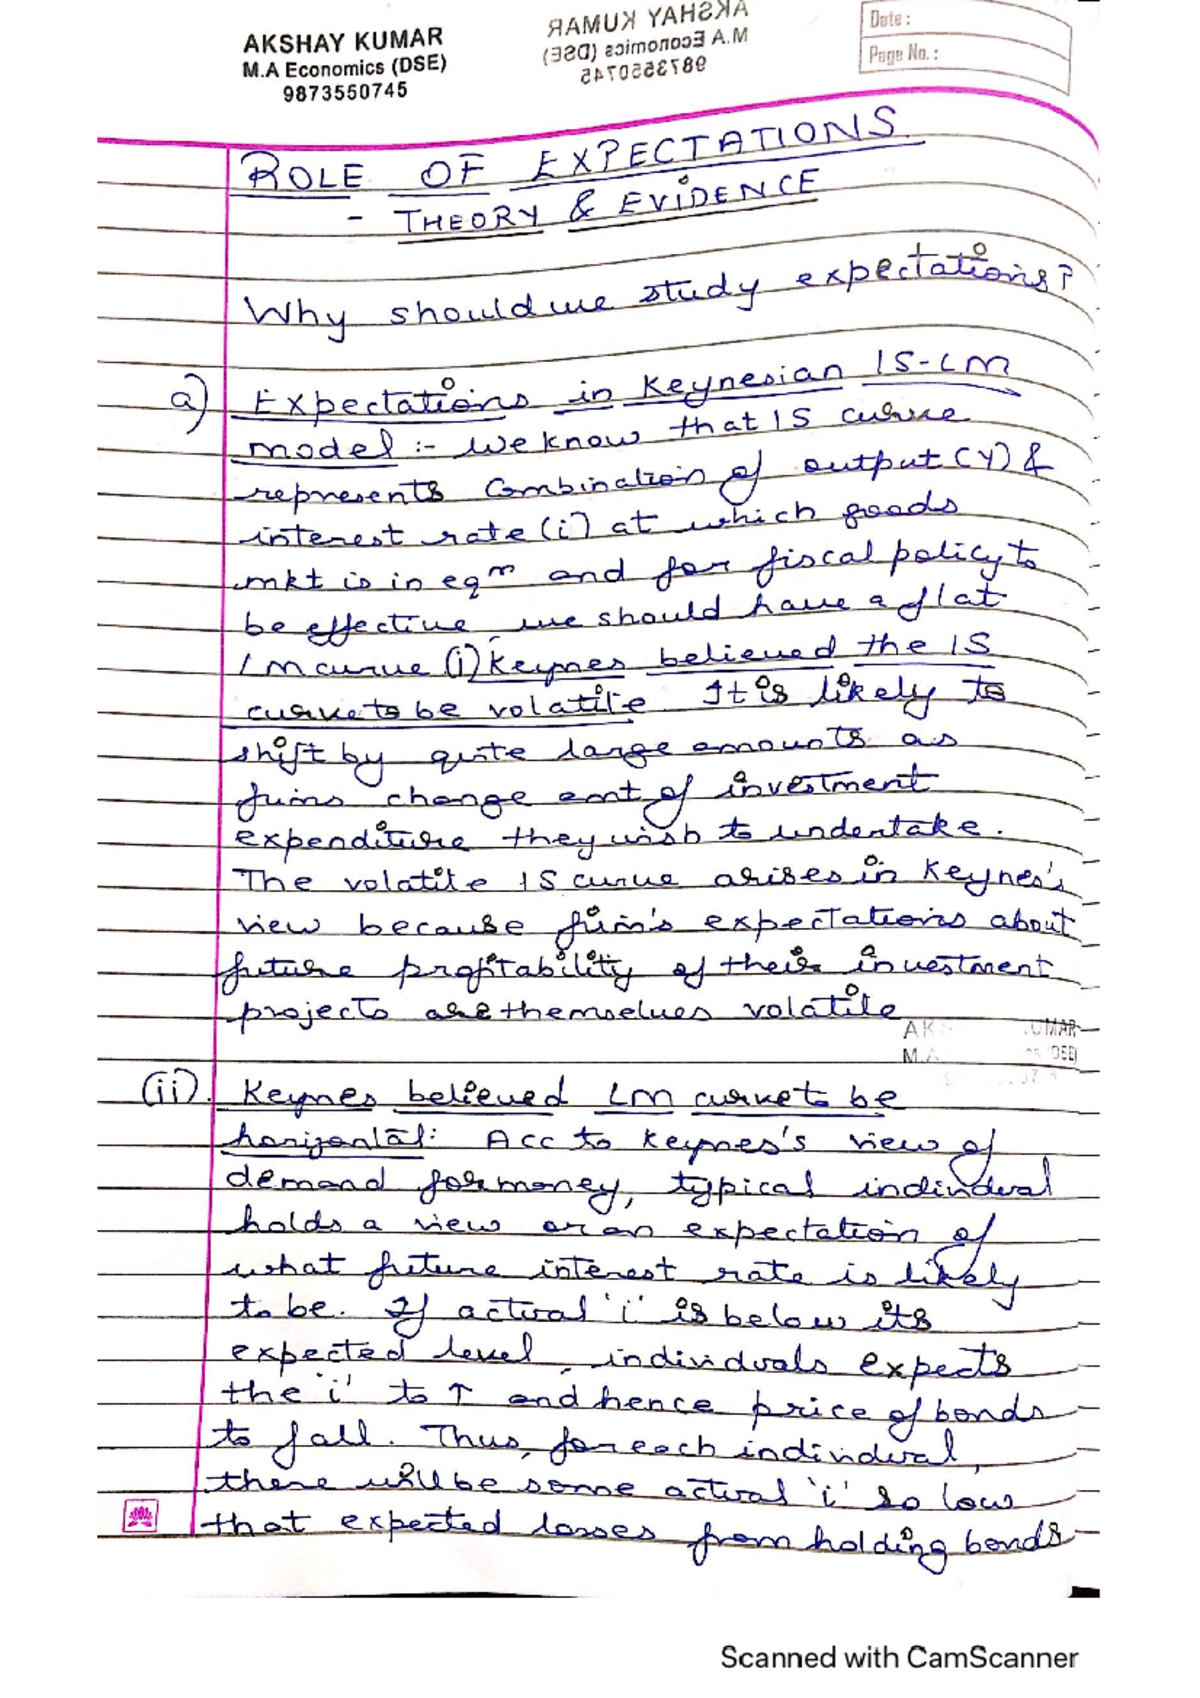 AKSHAY KUMAR
M.A Economics (DSE)
9873550745
AKSHAY KUMAR
M.A Economics (DSE)
9873550745
Date :
Page No. :
ROLE OF EXPECTATIONS.
- THEORY & EVIDENCE
Why should we study expectations?
a) Expectations in Keynesian IS-LM
model :- We know that IS curve
represents Combination of output (Y) &
interest rate (i) at which goods
mkt is in eqm and for fiscal policy to
be effective, we should have a flat
LM curve (i) Keynes believed the IS
curve to be volatile It is likely to
shift by quite large amounts as
firms change amt of investment
expenditure they wish to undertake.
The volatile IS curve arises in Keynes's
view because firm's expectations about
future profitability of their investment
projects are themselves volatile
AK UMAR
M.A (DSE)
(ii). Keynes believed LM curve to be
horizontal: Acc to Keynes's view of
demand for money, typical individual
holds a view or an expectation of
what future interest rate is likely
to be. If actual 'i' is below its
expected level, individuals expects
the 'i' to ↑ and hence price of bonds
to fall. Thus, for each individual,
there will be some actual 'i' so low
that expected losses from holding bonds
Scanned with CamScanner